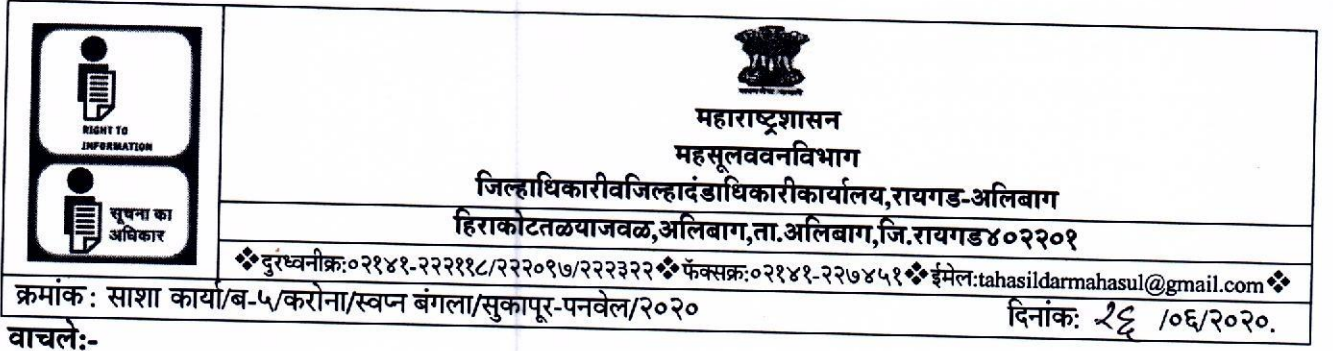 RIGHT TO
INFORMATION
सूचना का
अधिकार
महाराष्ट्रशासन
महसूलववनविभाग
जिल्हाधिकारीवजिल्हादंडाधिकारीकार्यालय,रायगड-अलिबाग
हिराकोटतळयाजवळ,अलिबाग,ता.अलिबाग,जि.रायगड४०२२०१
❖दुरध्वनीक्र:०२१४१-२२२११८/२२२०९७/२२२३२२❖फॅक्सक्र:०२१४१-२२७४५१❖ईमेल:tahasildarmahasul@gmail.com❖
क्रमांक : साशा कार्या/ब-५/करोना/स्वप्न बंगला/सुकापूर-पनवेल/२०२० दिनांक: २६ /०६/२०२०.
वाचले:-